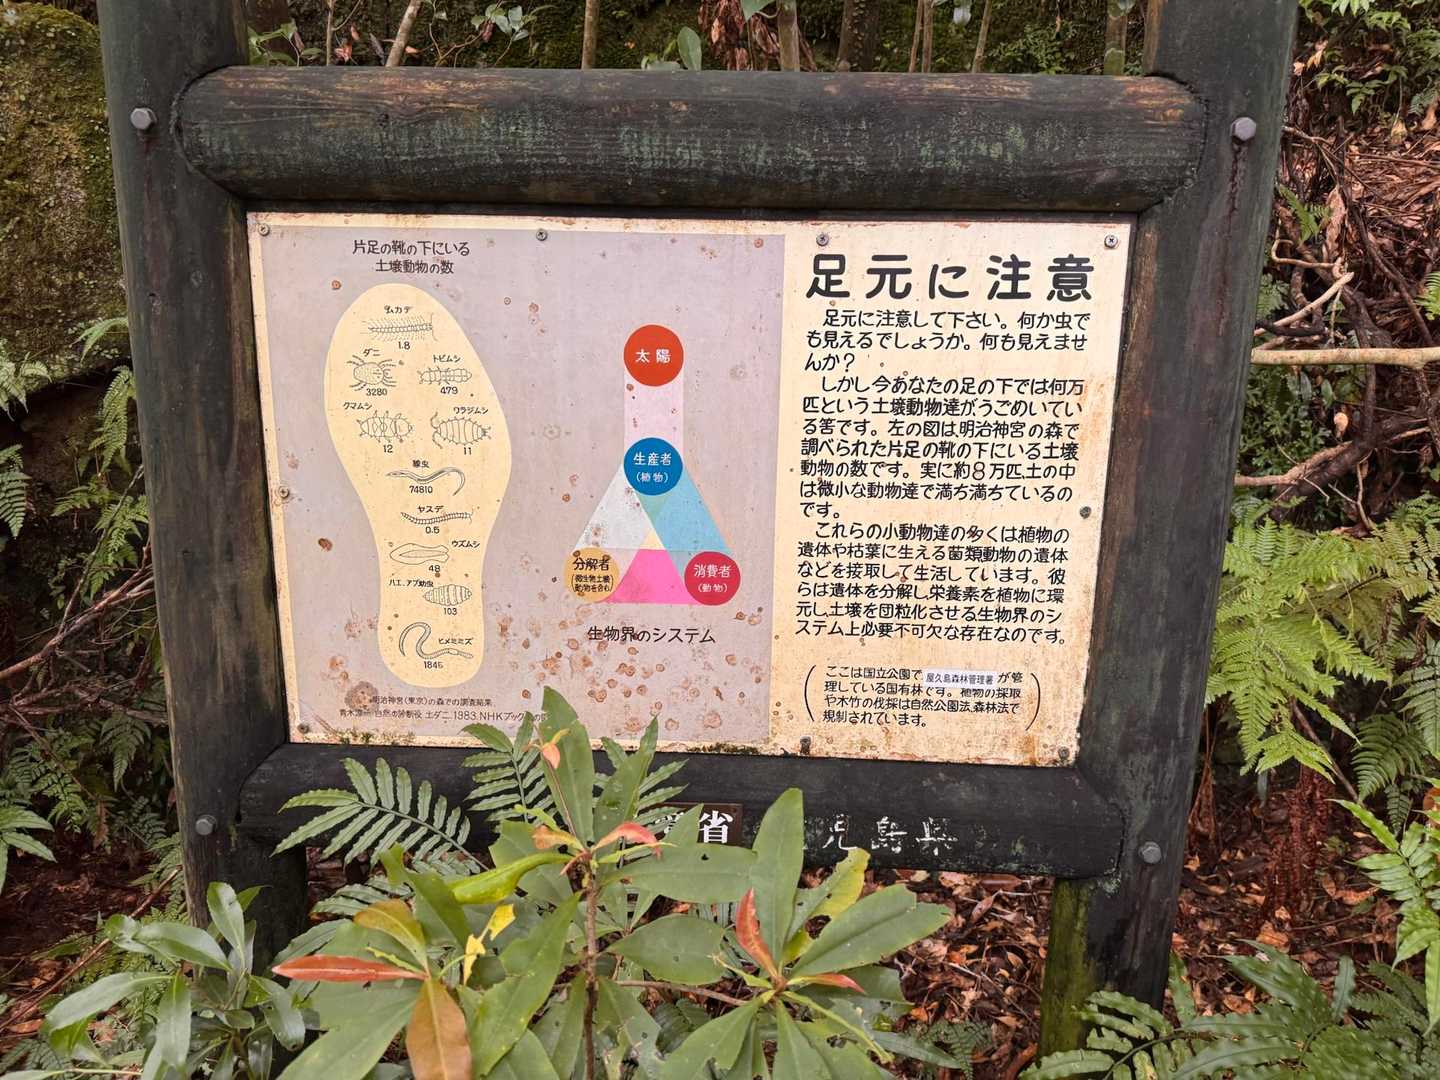 片足の靴の下にいる
土壌動物の数
ムカデ
1.8
ダニ
3280
トビムシ
479
クマムシ
12
ワラジムシ
11
線虫
74810
ヤスデ
0.5
ウズムシ
48
ハエ、アブ幼虫
103
ヒメミミズ
1845
明治神宮(東京)の森での調査結果
自然の診断役 土ダニ、1983、NHKブック
太陽
生産者
(植物)
分解者
(微生物土壌
動物を含む)
消費者
(動物)
生物界のシステム
足元に注意
足元に注意して下さい。何か虫で
も見えるでしょうか。何も見えませ
んか?
しかし今あなたの足の下では何万
匹という土壌動物達がうごめいてい
る筈です。左の図は明治神宮の森で
調べられた片足の靴の下にいる土壌
動物の数です。実に約8万匹、土の中
は微小な動物達で満ち満ちているの
です。
これらの小動物達の多くは植物の
遺体や枯葉に生える菌類動物の遺体
などを接取して生活しています。彼
らは遺体を分解し、栄養素を植物に還
元し、土壌を団粒化させる生物界のシ
ステム上必要不可欠な存在なのです。
(ここは国立公園で、屋久島森林管理署が管
理している国有林です。植物の採取
や木竹の伐採は自然公園法、森林法で
規制されています。)
省
児島県